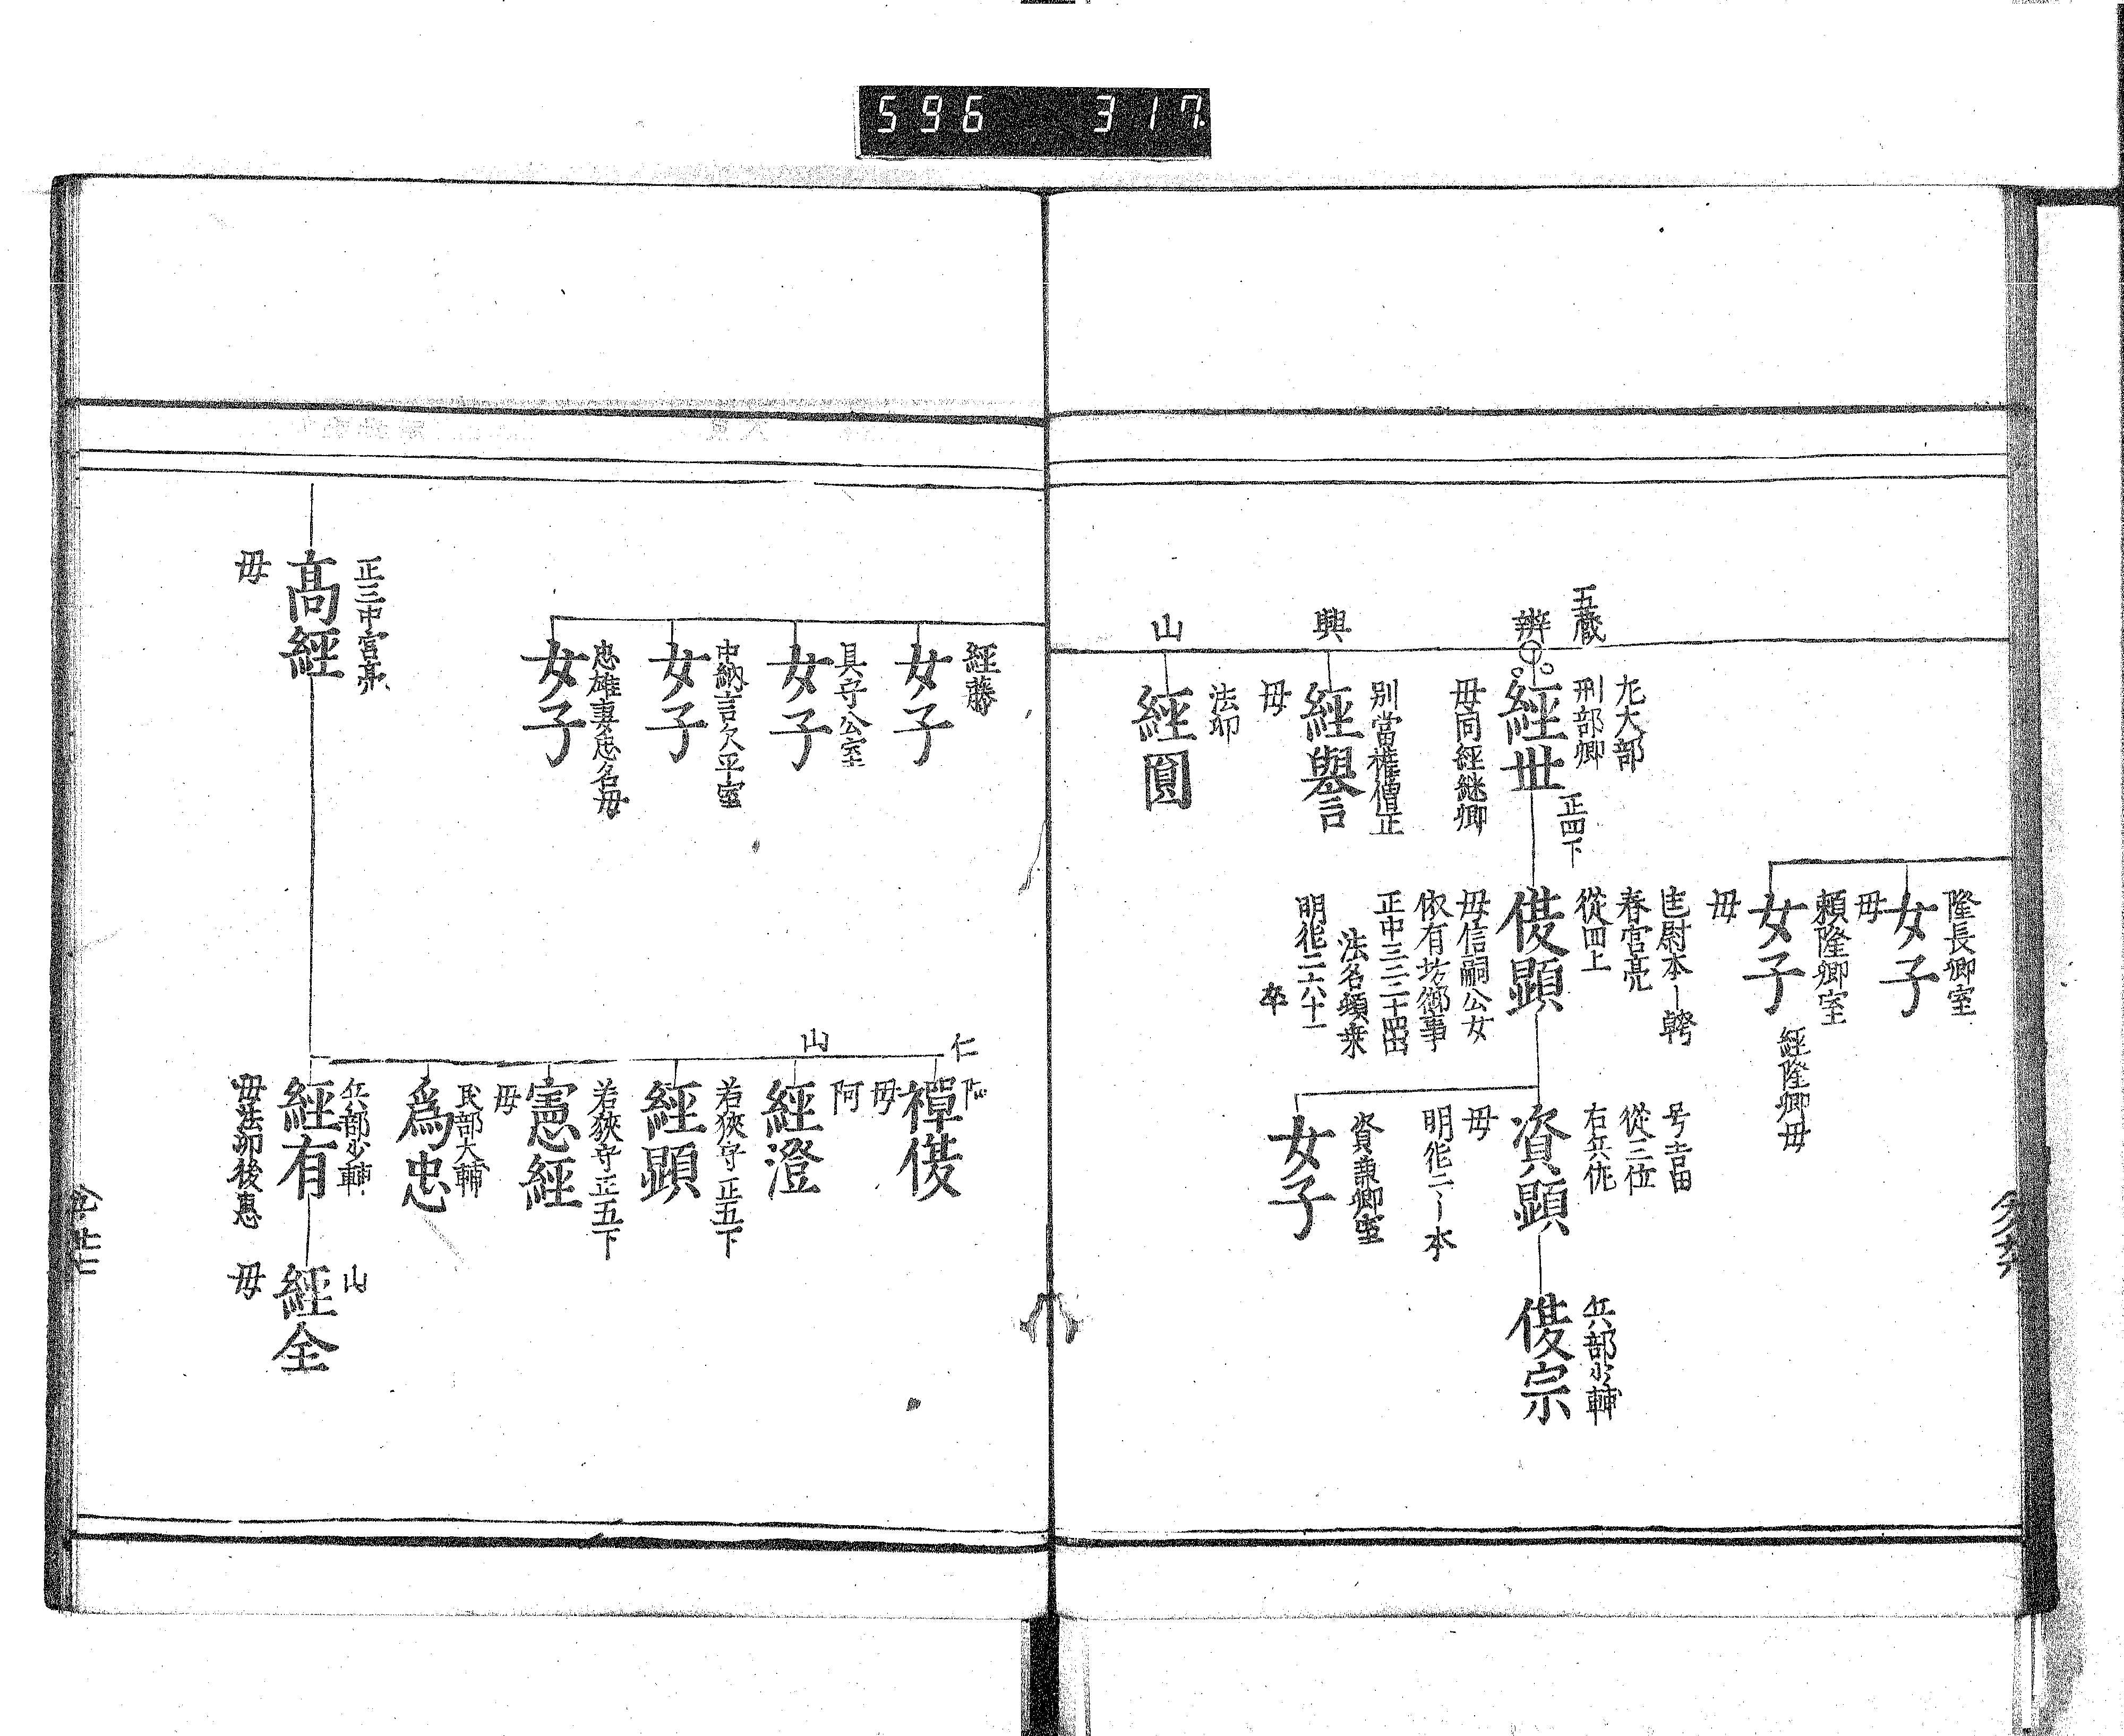 596 317
隆長卿室
女子
母
頼隆卿室
女子
經隆卿母
母
五蔵
辨
九大部
刑部卿
經世
正四下
母同經継卿
春宮亮
從四上
俊顕
母信嗣公女
依有坊御事
正中三二二十四出
法名頌乗
明化二六十一
卒
号吉田
從三位
右兵佐
資顕
母
明化二〡本
資兼卿室
女子
兵部少輔
俊宗
興
別當權僧正
經譽
母
山
法印
經圓
經藤
女子
具守公室
女子
中納言久平室
女子
忠雄妻忠名母
女子
正三中宮亮
高經
母
仁
禅俊
母
山
阿
經澄
若狹守正五下
經顕
若狹守正五下
憲經
母
民部大輔
為忠
兵部少輔
經有
母法印後惠
山
經全
母